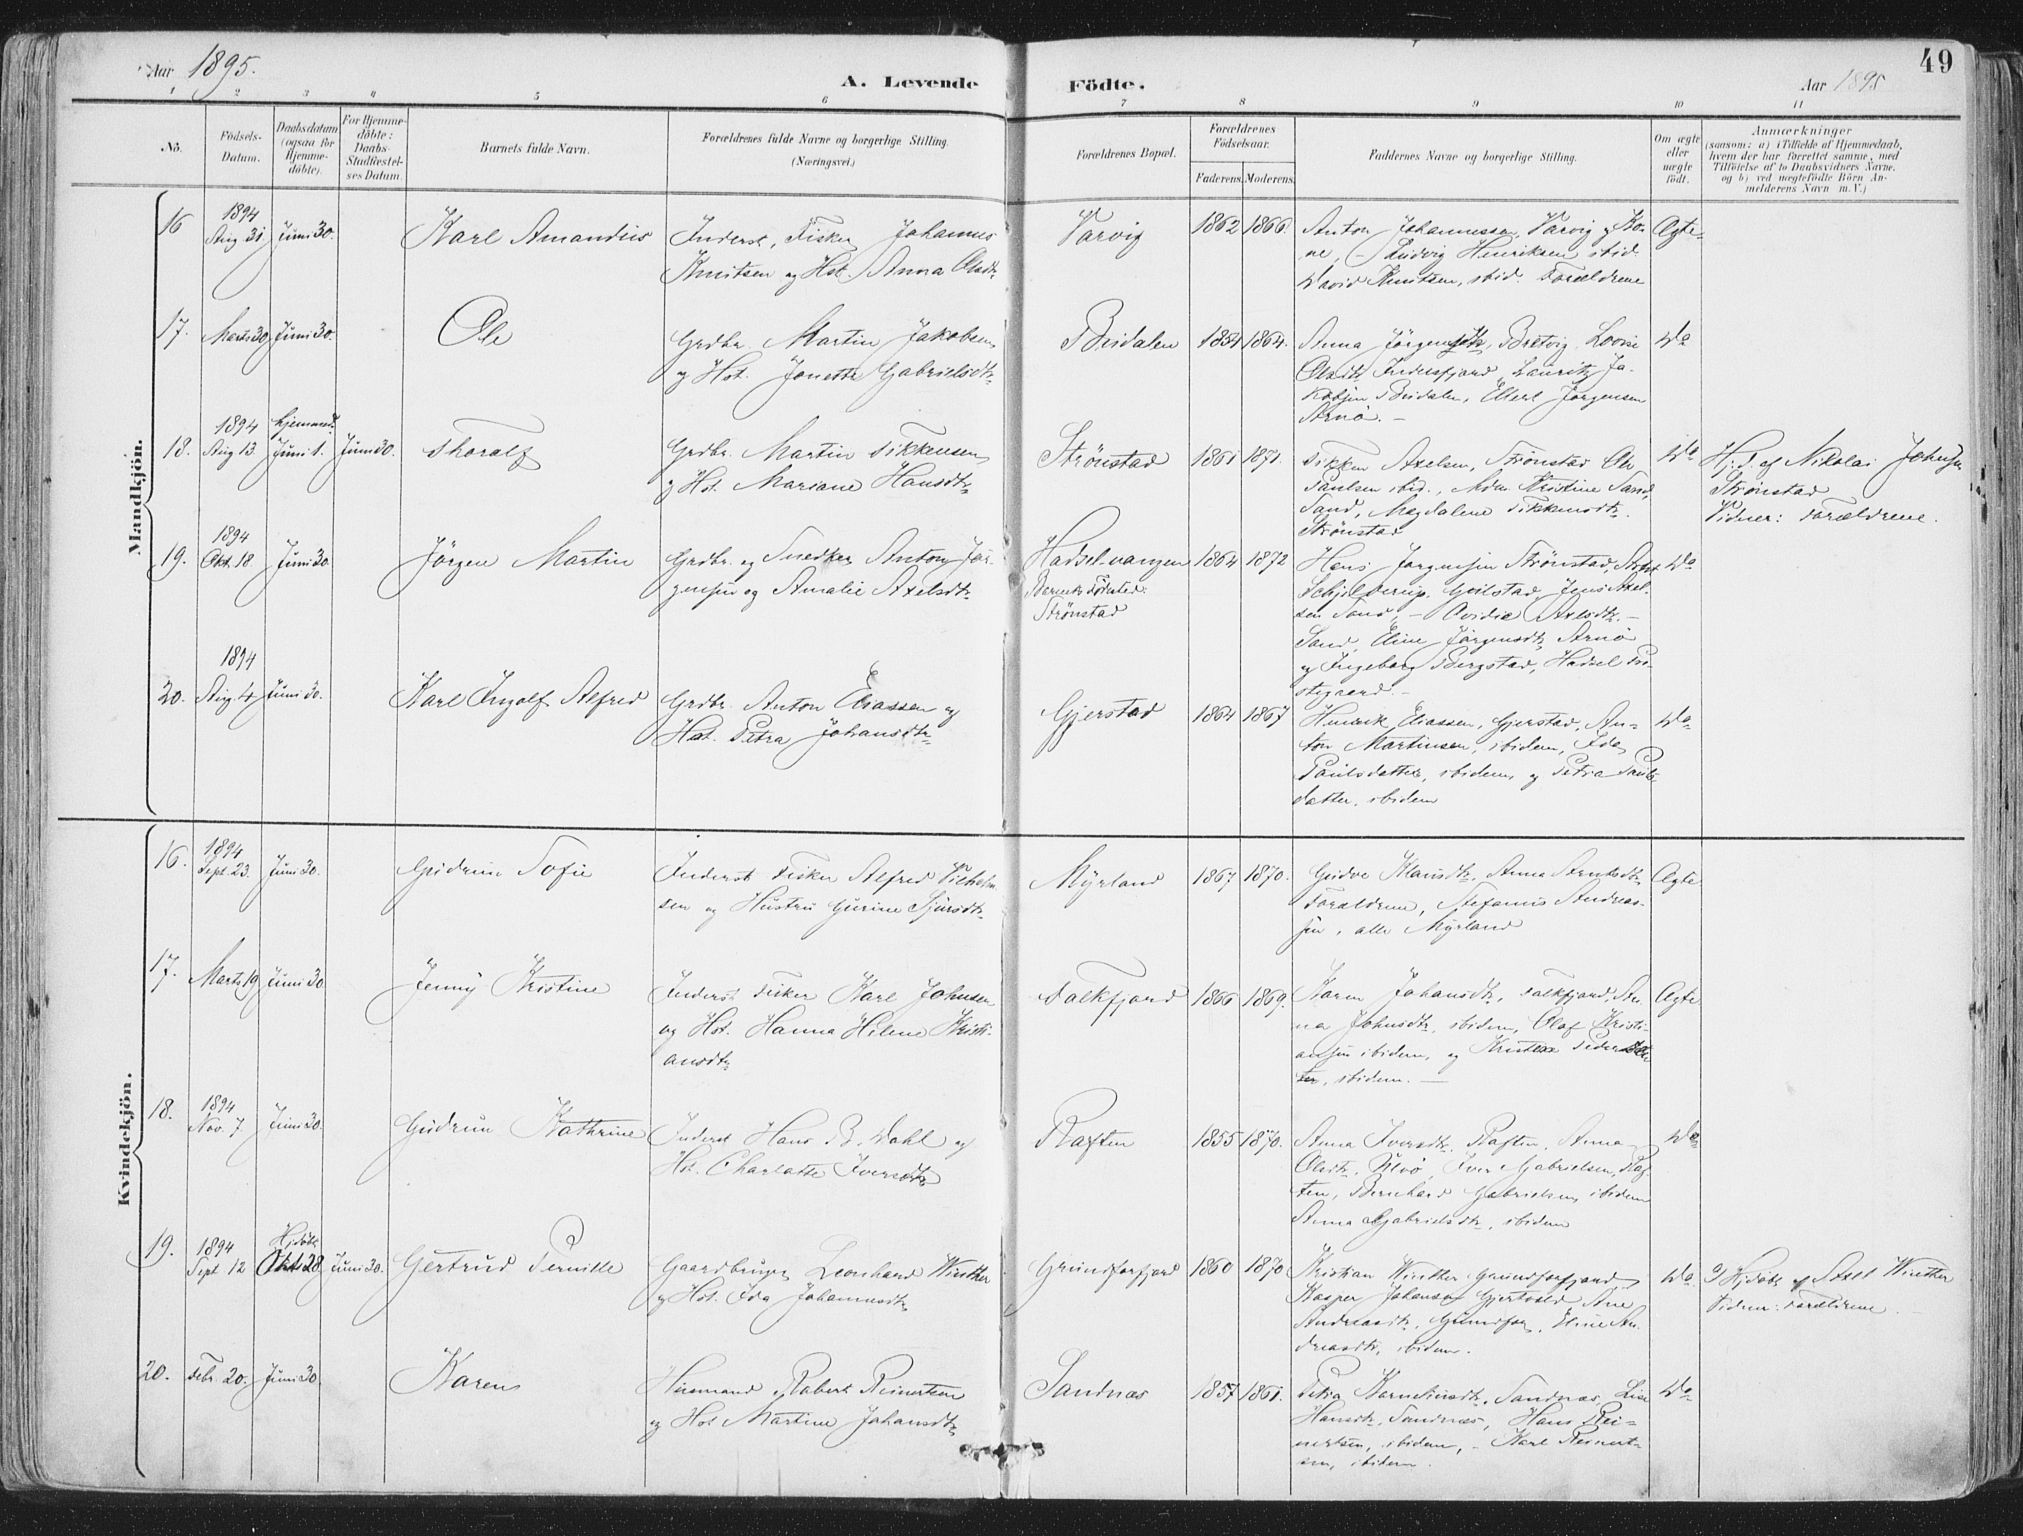 49
Aar 1895.
A. Levende
Födte.
Aar 1895
1 2 3 4 5 6 7 8 9 10 11
No.
Födsels-
Datum.
Daabsdatum
(ogsaa for
Hjemme-
döbte).
For Hjemme-
döbte:
Daabs-
Stadfæstel-
ses Datum.
Barnets fulde Navn.
Forældrenes fulde Navne og borgerlige Stilling.
(Næringsvei.)
Forældrenes Bopæl.
Forældrenes
Födselsaar.
Faderens. Moderens.
Faddernes Navne og borgerlige Stilling.
Om ægte
eller
uægte
födt.
Anmærkninger
(saasom: a) i Tilfælde af Hjemmedaab,
hvem der har forrettet samme, med
Tilföielse af to Daabsvidners Navne.
og b) ved uægtefödte Börn An-
melderens Navn m. V.)
Mandkjön.
16
1894
Aug 31
Juni 30.
Karl Amandus
Inderst, Fisker Johannes
Knutsen og Hst. Anna Olsdtr
Varvig
1862
1866.
Anton Johannessen, Varvig og Ko-
ne, Ludvig Henriksen ibid
David Knutsen, ibid. Forældrene
Ægte
17.
Marts 30
Juni 30.
Ole
Grdbr. Martin Jakobsen
og Hst. Jonette Gabrielsdtr
Beisdalen
1834
1864.
Anna Jörgensdtr, Bretvig, Lovise
Olsdtr Indresfjord, Lauritz Ja-
kobsen Beisdalen, Ellert Jörgensen
Arnö. –
Do
18.
1894
Aug 13.
hjemmed.
Juni 1.
Juni 30.
Thoralf
Grdbr. Martin Tikkensen
og Hst. Mariane Hansdtr
Strönstad
1861
1871.
Tikken Axelsen, Strönstad Ole
Paulsen ibid., Mdm Kristine Sand,
Sand, Magdalene Tikkensdtr.
Strönstad
Do
Hj.d. af Nikolai Johnsen
Strönstad
Vidner: Forældrene.
19.
1894
Okt. 18.
Juni 30
Jörgen Martin
Grdbr. og Snedker Anton Jör-
gensen og Amalie Axelsdtr
Hadsel-vangen
Barnets Födested:
Strönstad
1864
1872
Hans Jörgensen Strönstad,
Schjelderup, Jens Axel-
sen Sand, – Ovidia Axelsdtr. –
Sand, Eline Jörgensdtr Arnö
og Ingeborg Bergstad, Hadsel Pre-
stegaard. –
Do
20.
1894
Aug. 4
Juni 30.
Karl Ingolf Alfred
Grdbr. Anton Eliassen og
Hst. Petra Johansdtr
Gjerstad
1864
1867
Henrik Eliassen, Gjerstad, An-
ton Martinsen, ibidem, Ida
Paulsdatter, ibidem, og Petra Pauls-
datter, ibidem
Do
Kvindekjön.
16.
1894
Sept. 23.
Juni 30.
Gudrun Sofie
Inderst Fisker Alfred Vilhelm-
sen og Hustru Gurine Sjursdtr
Myrland
1867
1870.
Gudve Klausdtr, Anna Arntsdtr
Forældrene, Stefanus Andreas-
sen, alle Myrland
Ægte
17.
Marts 19
Juni 30
Jenny Kristine
Inderst Fisker Karl Johnsen
og Hst. Hanna Helene Kristi-
ansdtr
Falkfjord
1866
1869.
Karen Johansdtr, Falkfjord, An-
na Johnsdtr, ibidem, Olaf Kristi-
ansen ibidem, og Kristine Pedersdat-
ter, ibidem. –
Ægte
18.
1894
Nov. 7
Juni 30
Gudrun Kathrine
Inderst Hans B. Dahl og
Hst. Charlotte Iversdtr
Raften
1855
1870.
Anna Iversdtr Raften, Anna
Olsdtr, Ulvö, Iver Gabrielsen, Raf-
ten, Bernhard Gabrielsen, ibidem
Anna Gabrielsdtr, ibidem
Do
19.
1894
Sept 12
Hjdöbt
Okt 28
Juni 30.
Gertrud Pernille
Gaardbruger Leonhard Winther
og Hst. Ida Johannesdtr
Grundforfjord
1860
1870
Kristian Winther Grundforfjord
Kasper Johansen Gjertvold Ane
Andreasdtr, Grundfor, Eline An-
dreasdtr, ibidem.
Do
a) Hjdöbt af Axel Winther
Vidner: Forældrene.
20.
Febr. 20.
Juni 30.
Karen
Husmand Robert Reinertsen
og Hst Martine Johansdtr
Sandnæs
1857
1861.
Petra Kornelinsdtr, Sandnæs, Lise
Hansdtr, Sandnæs, Hans Rei-
nertsen, ibidem, – Karl Reinert-
sen, ibidem.
Do